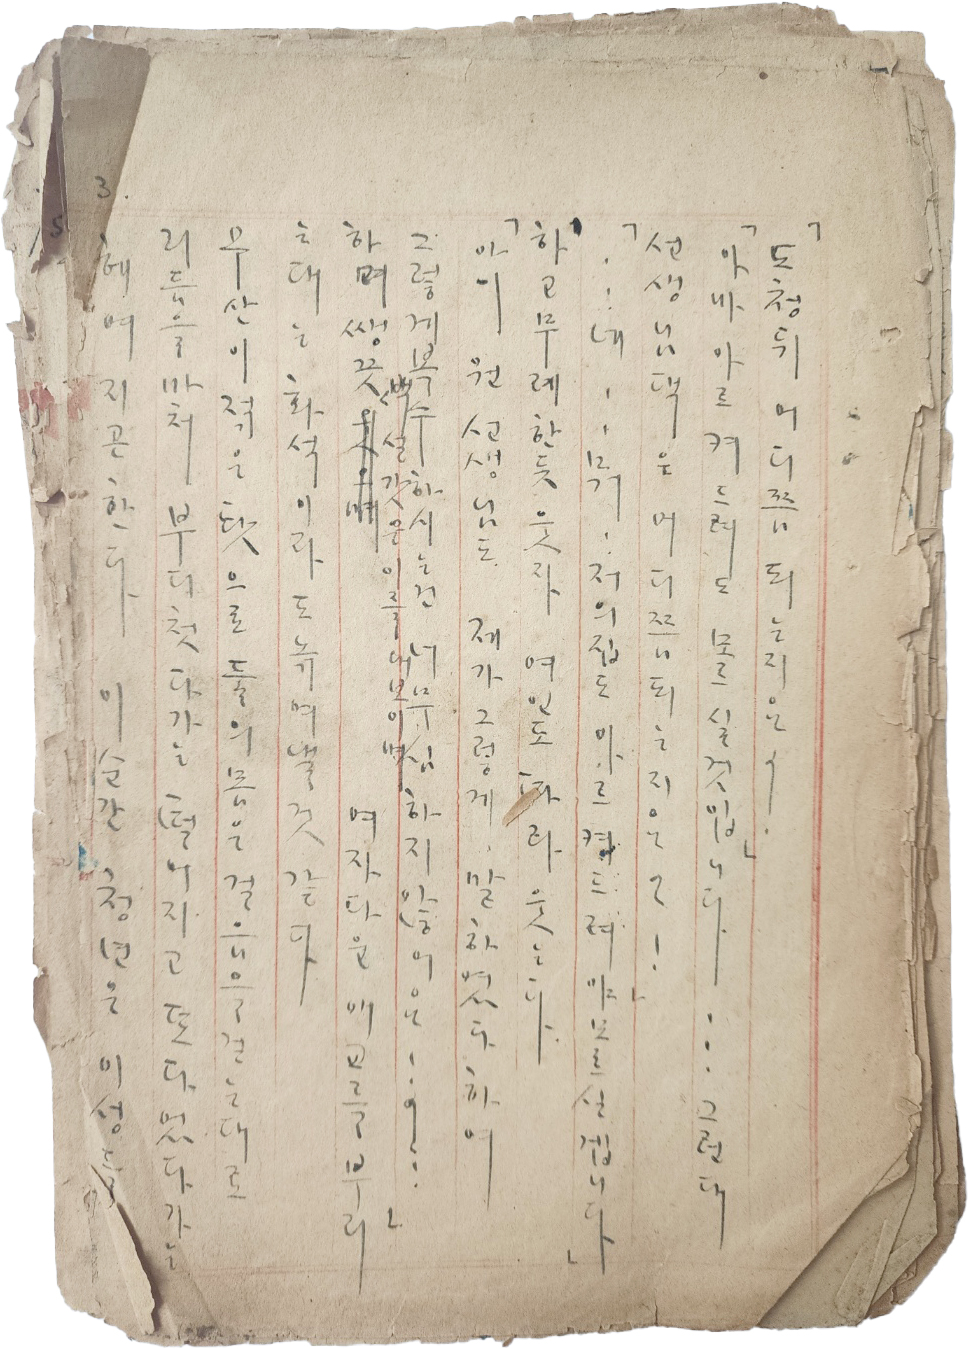 「도청뒤 어디쯤 되는지요!
「아바 아르켜 드려도 모르실것입니다」...그런대
선생님댁은 어디쯤 되는지요?!
「...네...뭐.저의집도 아르켜드려야 모르실겝니다」
하고 무례한듯 웃자 여인도 따라 웃는다
「아이 원 선생님도 제가 그렇게 말하였다하여
그렇게 복수하시는건 너무심하지않어요!...」
하며 쌩끗 백설갓은이를 내보이며 여자다운 애교를부리
는대는 화석이라도 녹여낼것 같다
무산이 적은 탓으로 둘의몸은 걸음을 걷는대로
리듬을 마처 부디첫다가는 떨어지고 또다었다가는
헤여지곤한다 이순간 청년은 이성들
3.
5